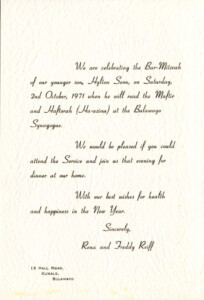 We are celebrating the Bar-Mitzvah
of our younger son, Hylton Sean, on Saturday,
2nd October, 1971 when he will read the Maftir
and Haftorah (Ha-azinu) at the Bulawayo
Synagogue.
We would be pleased if you could
attend the Service and join us that evening for
dinner at our home.
With our best wishes for health
and happiness in the New Year.
Sincerely,
Rena and Freddy Reiff
16 HALL ROAD,
KUMALO,
BULAWAYO